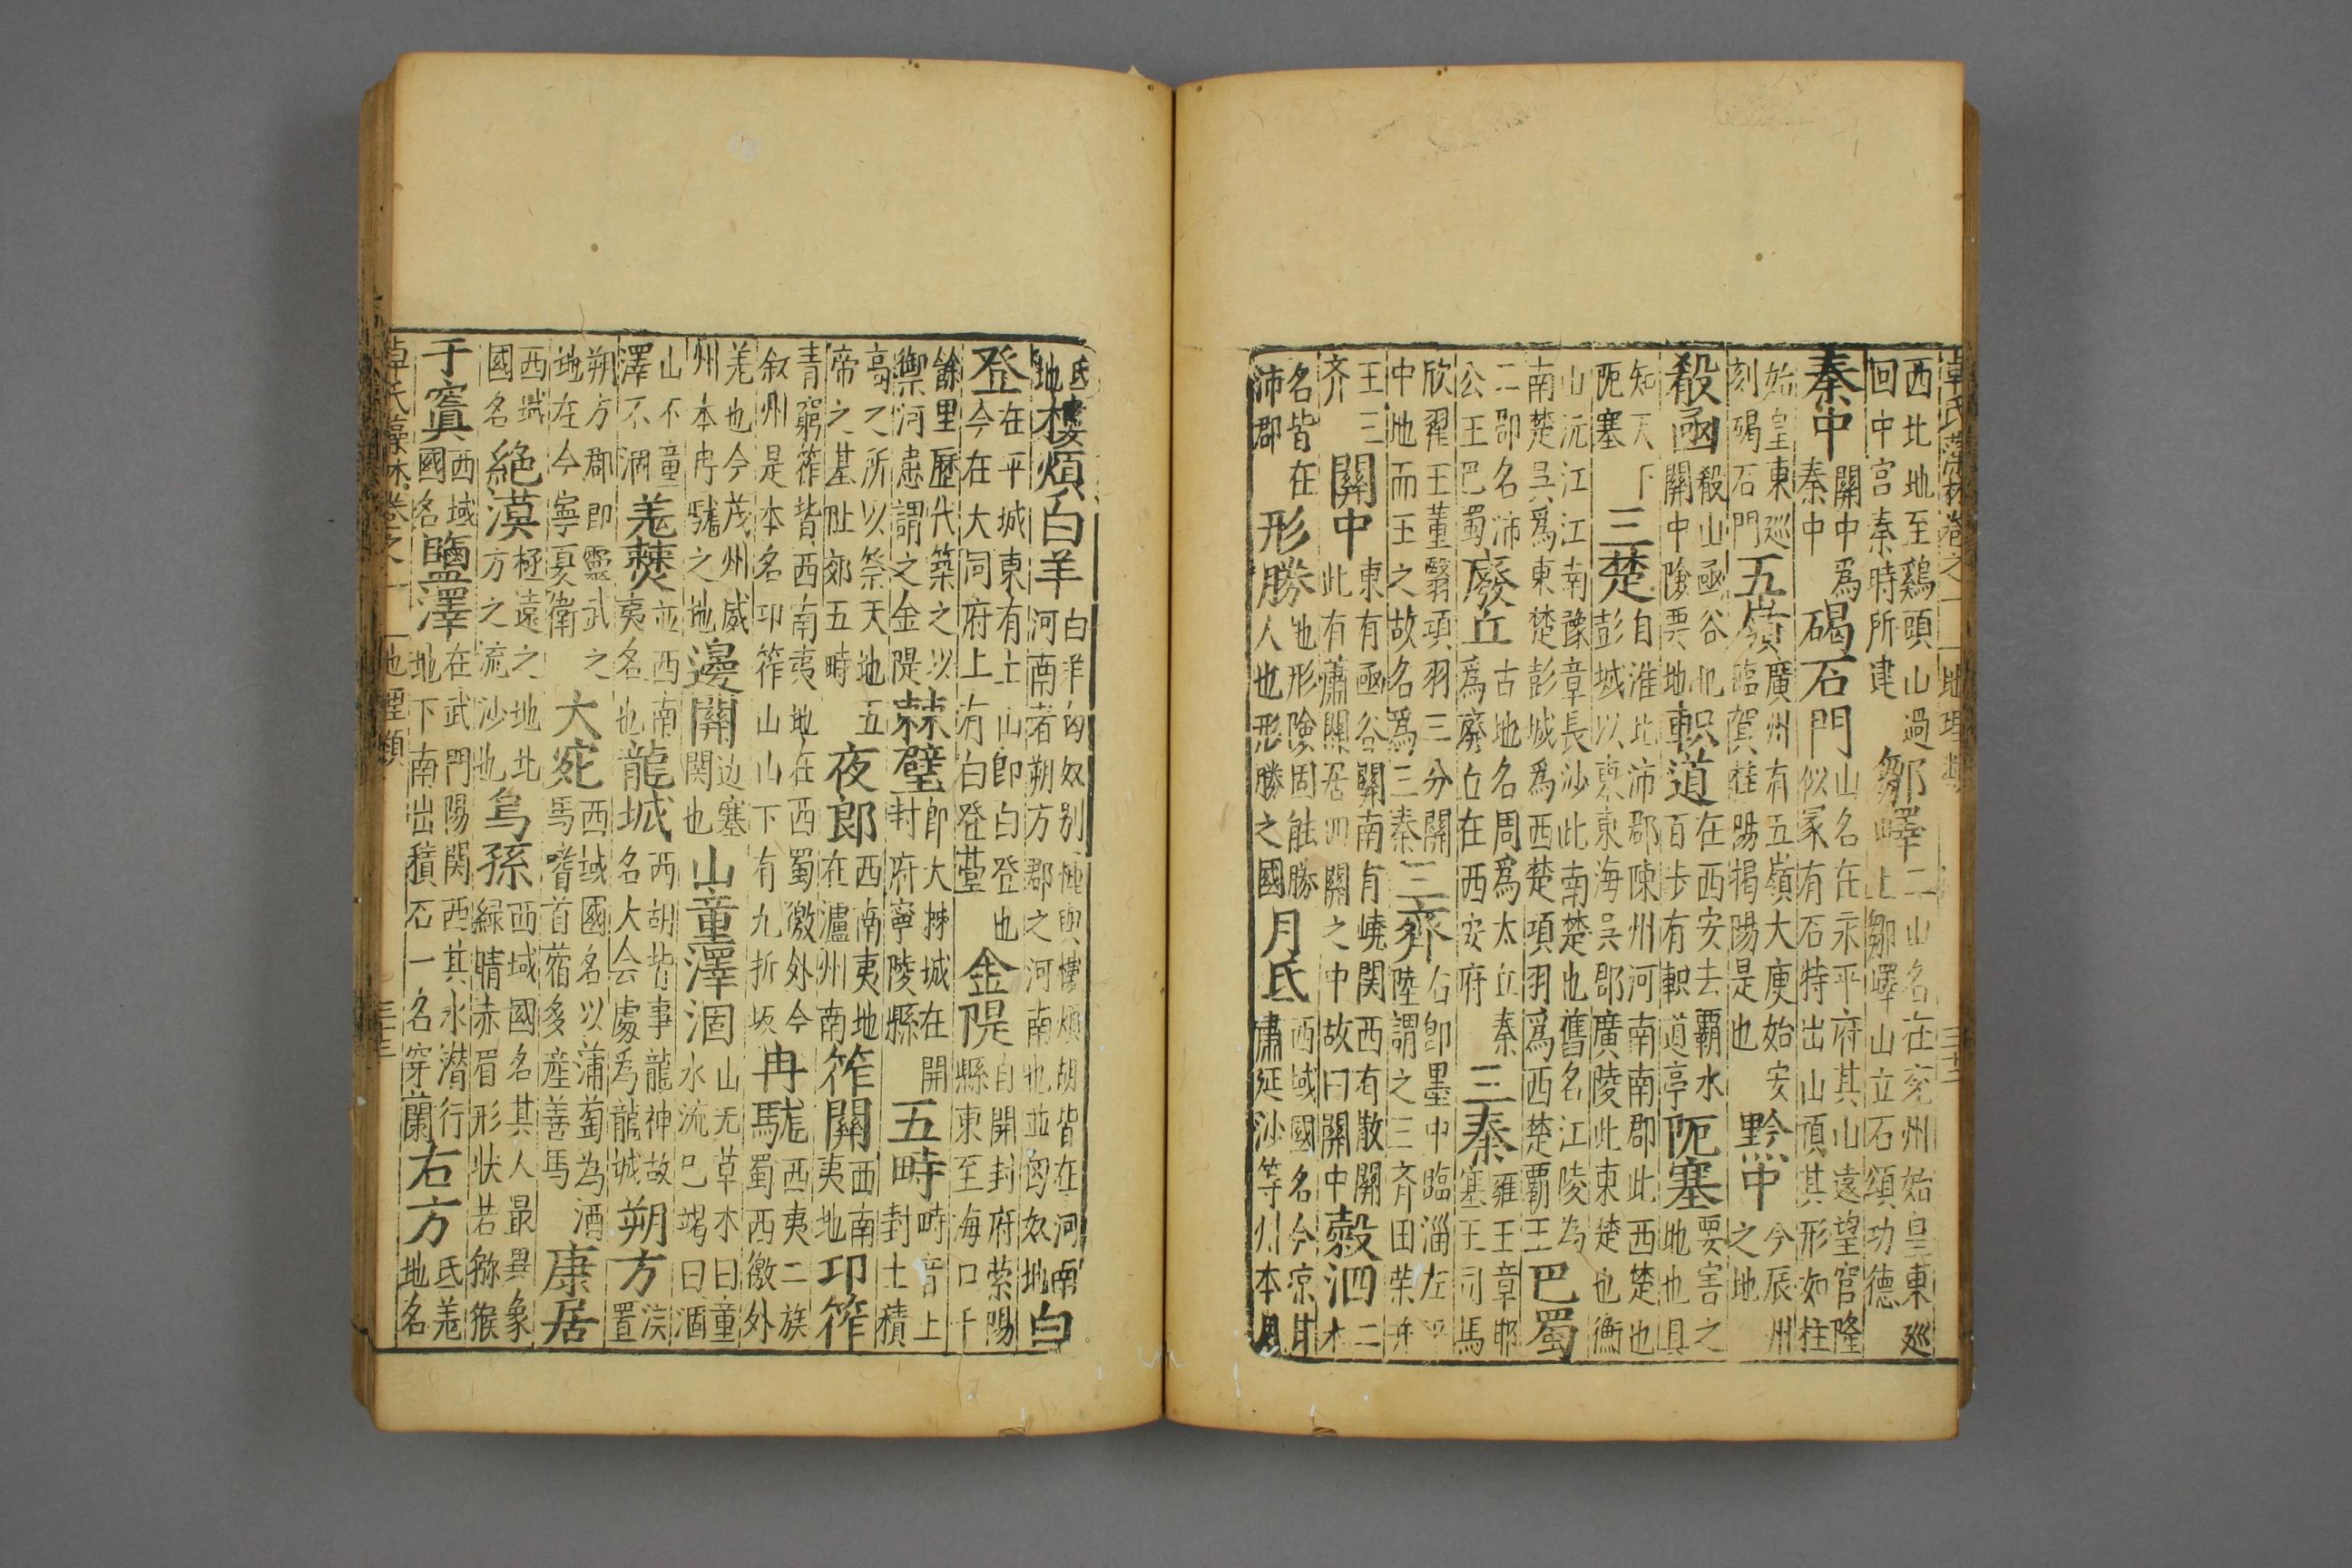 西北地至鷄頭山過回中宮秦時所建鄒嶧二山名在兖州始皇東廵上鄒嶧山立石頌功德
秦中關中爲秦中碣石門山名在永平府其山遠望宮隆似冢有石特出山頂其形如柱
始皇東廵刻碣石門五嶺廣州有五嶺大庾始安臨賀桂陽揭陽是也黔中今辰州之地
殽函殽山函谷也關中険要地軹道在西安去覇水百步有軹道亭阨塞要害之地也具
知天下阨塞三楚自淮北沛郡陳州河南南郡此西楚也彭城以東東海吳郡廣陵此東楚也衡
山沅江江南豫章長沙此南楚也舊名江陵為南楚吳爲東楚彭城爲西楚項羽爲西楚覇王巴蜀
二郡名沛公王巴蜀廢丘古地名周爲太丘秦爲廢丘在西安府三秦雍王章邯塞王司馬
欣翟王董翳項羽三分關中地而王之故名爲三秦三齊右即墨中臨淄左平陸謂之三齐田榮并
王三齐關中東有函谷關南有嶢関西有散關此有蕭關居四關之中故曰關中榖泗二水
名皆在沛郡形勝地形險固能勝人也形勝之國月氏西域國名今凉甘肅延沙等州本月
卓氏藻林卷之一 地理類 三十二
氏地樓煩白羊白羊匈奴别種與樓煩胡皆在河南河南者朔方郡之河南地並匈奴地白
登在平城東有土山即白登也今在大同府上有白登臺金隄自開封府縈陽縣東至海口千
餘里歷代築之以禦河患謂之金隄棘壁即大棘城在開封府寧陵縣五畤畤音上封土積
高之所以祭天地五帝之基址郊五畤夜郎西南夷地在瀘州南筰關西南夷地卭筰
青窮筰皆西南夷地在西蜀徼外今叙州是本名卭筰山山下有九折坂冉駹西夷二族蜀西徼外
羌也今茂州威州本冉駹之地邊關边塞関也山童澤涸山无草木曰童水流巳竭曰涸
山不童澤不涸羗僰並西南夷名也龍城西胡皆事龍神故名大会處爲龍城朔方漢置
朔方郡即靈武之地在今寧夏衛大宛西域國名以蒲萄為酒馬嗜首蓿多產善馬康居
西域國名絶漠極遠之地北方之流沙也烏孫西域國名其人最異象緑睛赤眉形状若猕猴
于窴西域國名鹽澤在武門陽関西其水潜行地下南出積石一名穿蘭右方氐羗地名
卓氏藻林卷之一 地理類 三十三